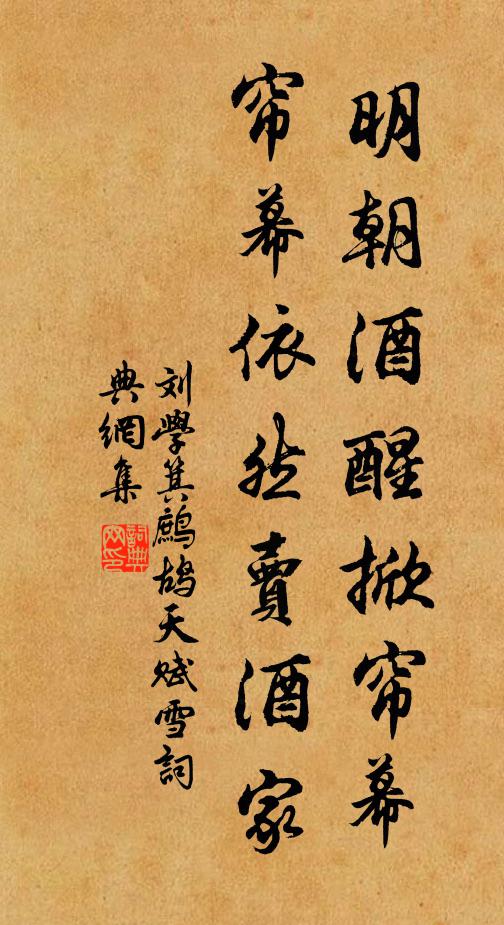 明朝酒醒掀帘幕
帘幕依然賣酒家
刘學箕鷓鴣天賦雪詞
典網集
詞典网印